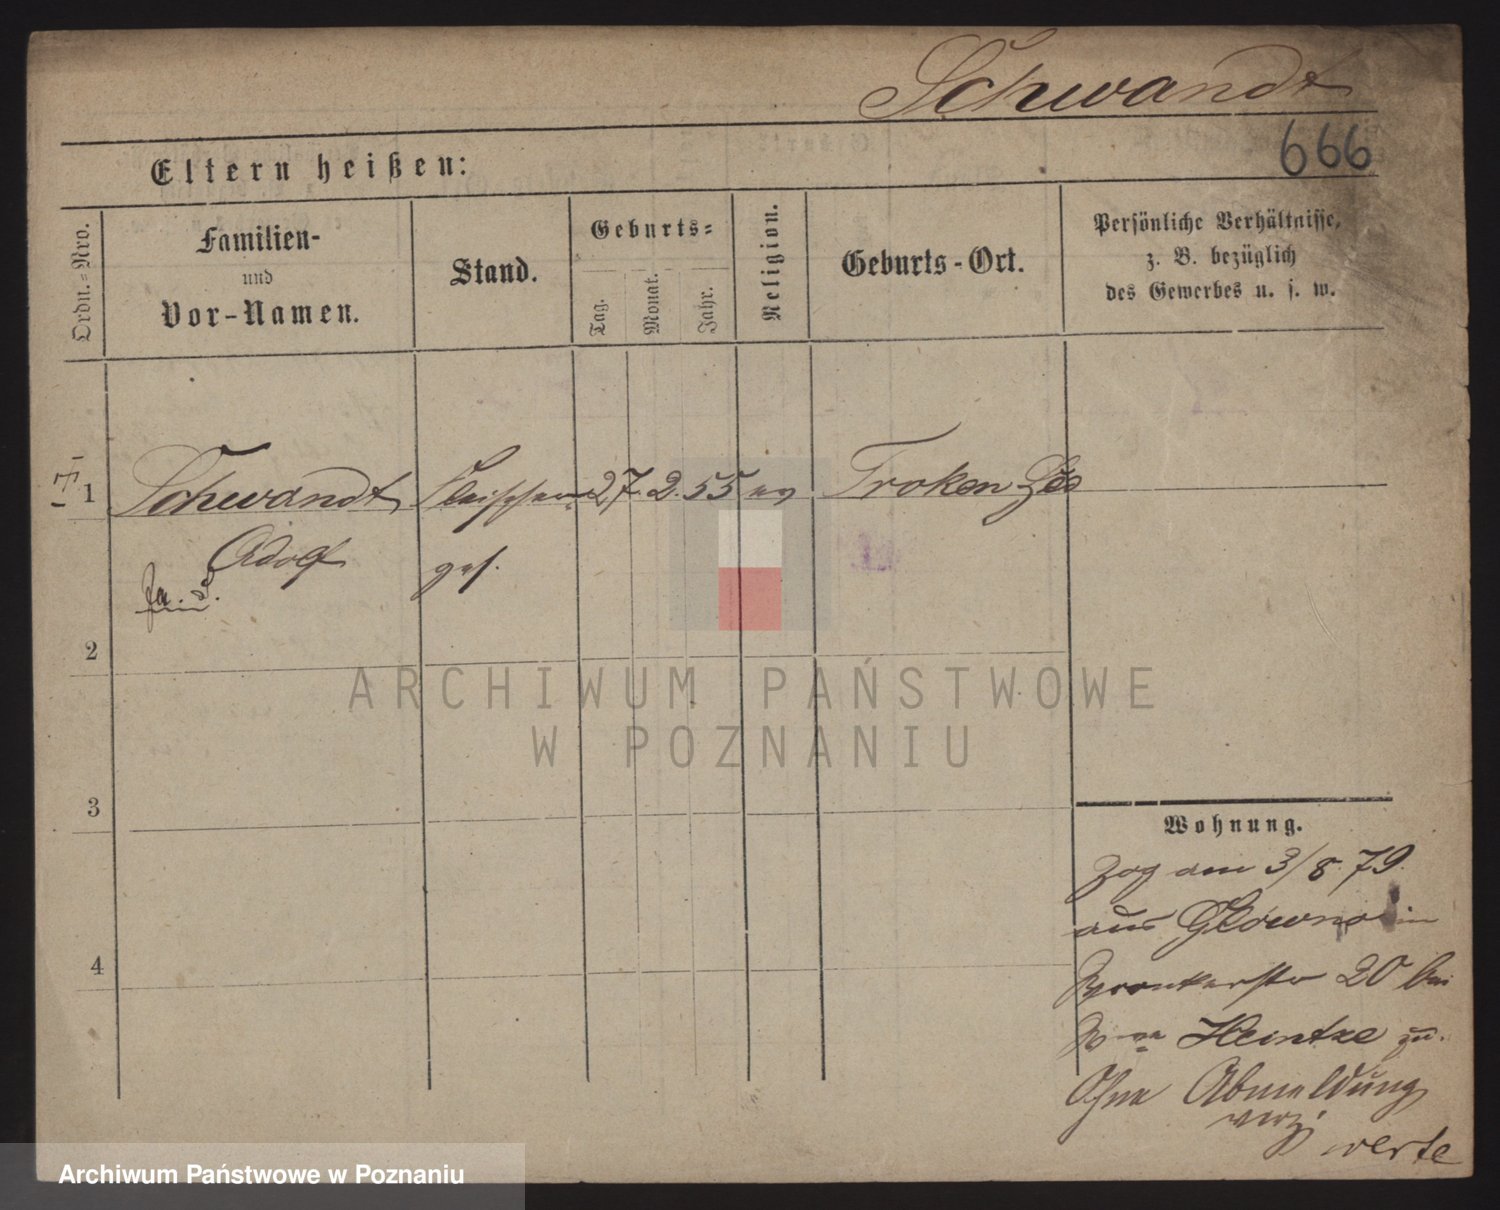 Schwandt
666
Eltern heißen:
Ordn.=Nro.
Familien-
und
Vor-Namen.
Stand.
Geburts=
Tag.
Monat.
Jahr.
Religion.
Geburts-Ort.
Persönliche Verhältnisse,
z. B. bezüglich
des Gewerbes u. s. w.
1 Schwandt Fleischer 27. 2. 55 ev Troken
Adolf ges.
2
3
4
Wohnung.
Zog am 3/8. 79.
aus Glowno in
Wronkerstr 20 bei
Heintze zu.
Ohne Abmeldung
verz
verte
ARCHIWUM PAŃSTWOWE
W POZNANIU
Archiwum Państwowe w Poznaniu